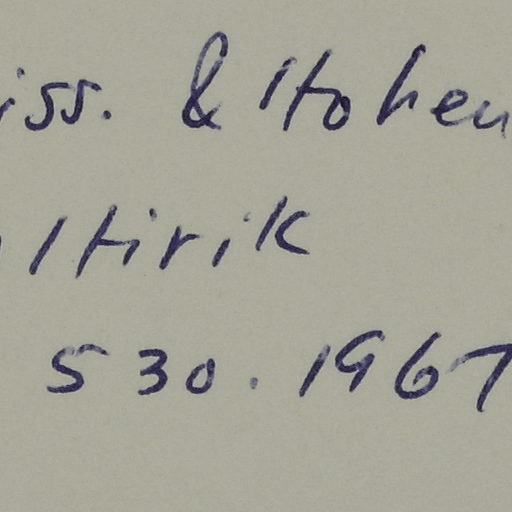 iss. & Hohen
Hirik
530.1967